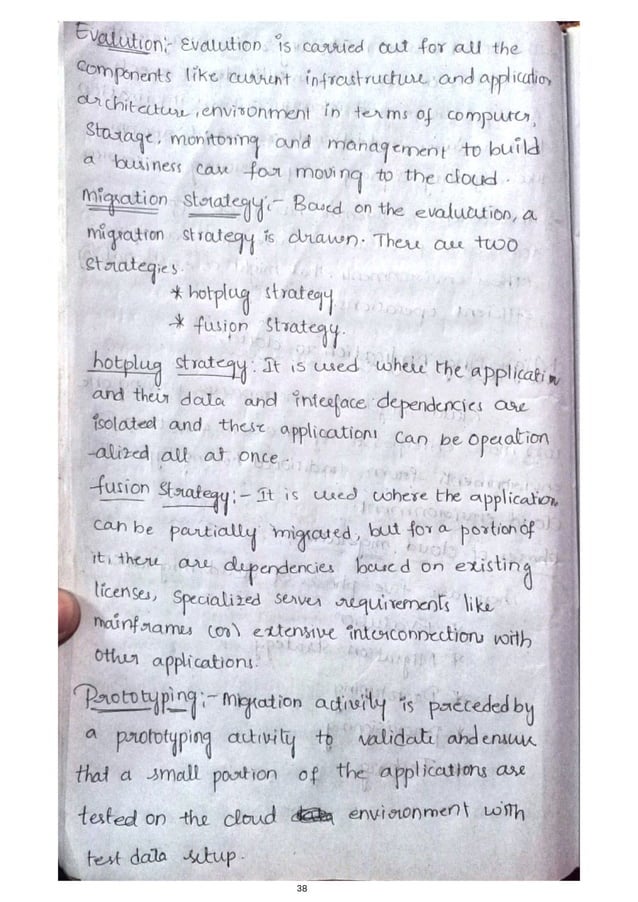 Evalution:- Evalution is carried out for all the
components like current infrastructure and application
architecture, environment in terms of computer,
Storage, monitoring and management to build
a business case for moving to the cloud.
Migration Strategy:- Based on the evaluation, a
migration strategy is drawn. There are two
Strategies.
* hotplug strategy
* fusion Strategy.
hotplug strategy: It is used where the application
and their data and interface dependencies are
isolated and these applications can be operation
-alized all at once.
fusion Strategy:- It is used where the application
can be partially migrated, but for a portion of
it, there are dependencies based on existing
licenses, Specialized server requirements like
mainframes (or) extensive interconnection with
other applications.
Prototyping:- Migration activity is preceded by
a prototyping activity to validate and ensure
that a small portion of the applications are
tested on the cloud environment with
test data setup.
38